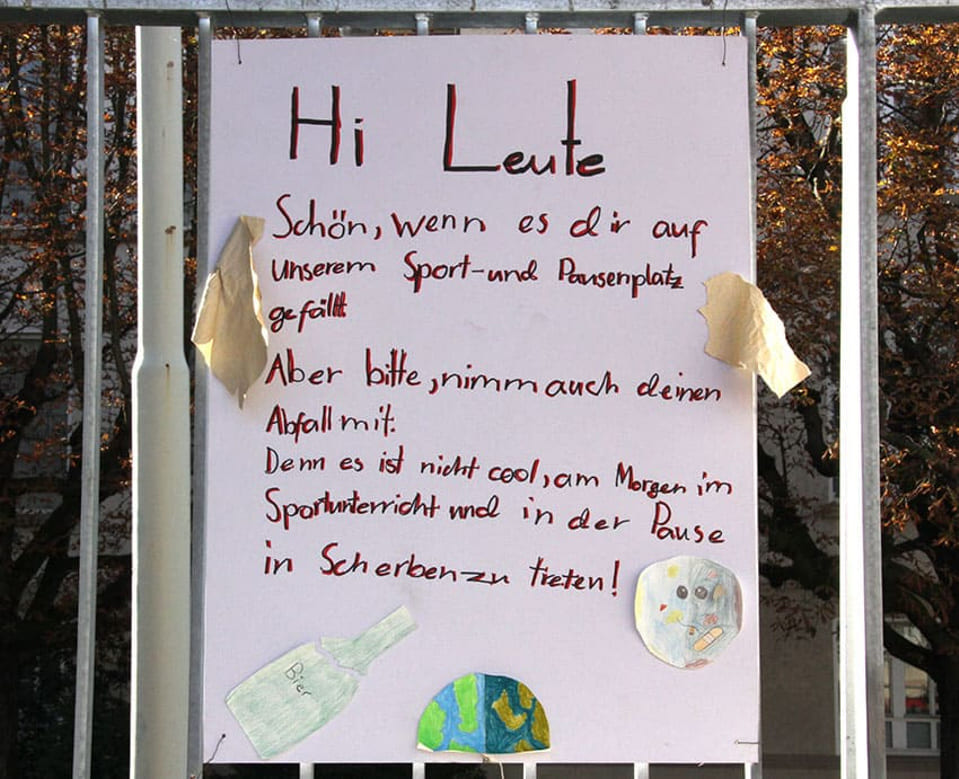 Hi Leute
Schön, wenn es dir auf
unserem Sport-und Pausenplatz
gefällt
Aber bitte, nimm auch deinen
Abfall mit.
Denn es ist nicht cool, am Morgen im
Sportunterricht und in der Pause
in Scherben zu treten!
Bier